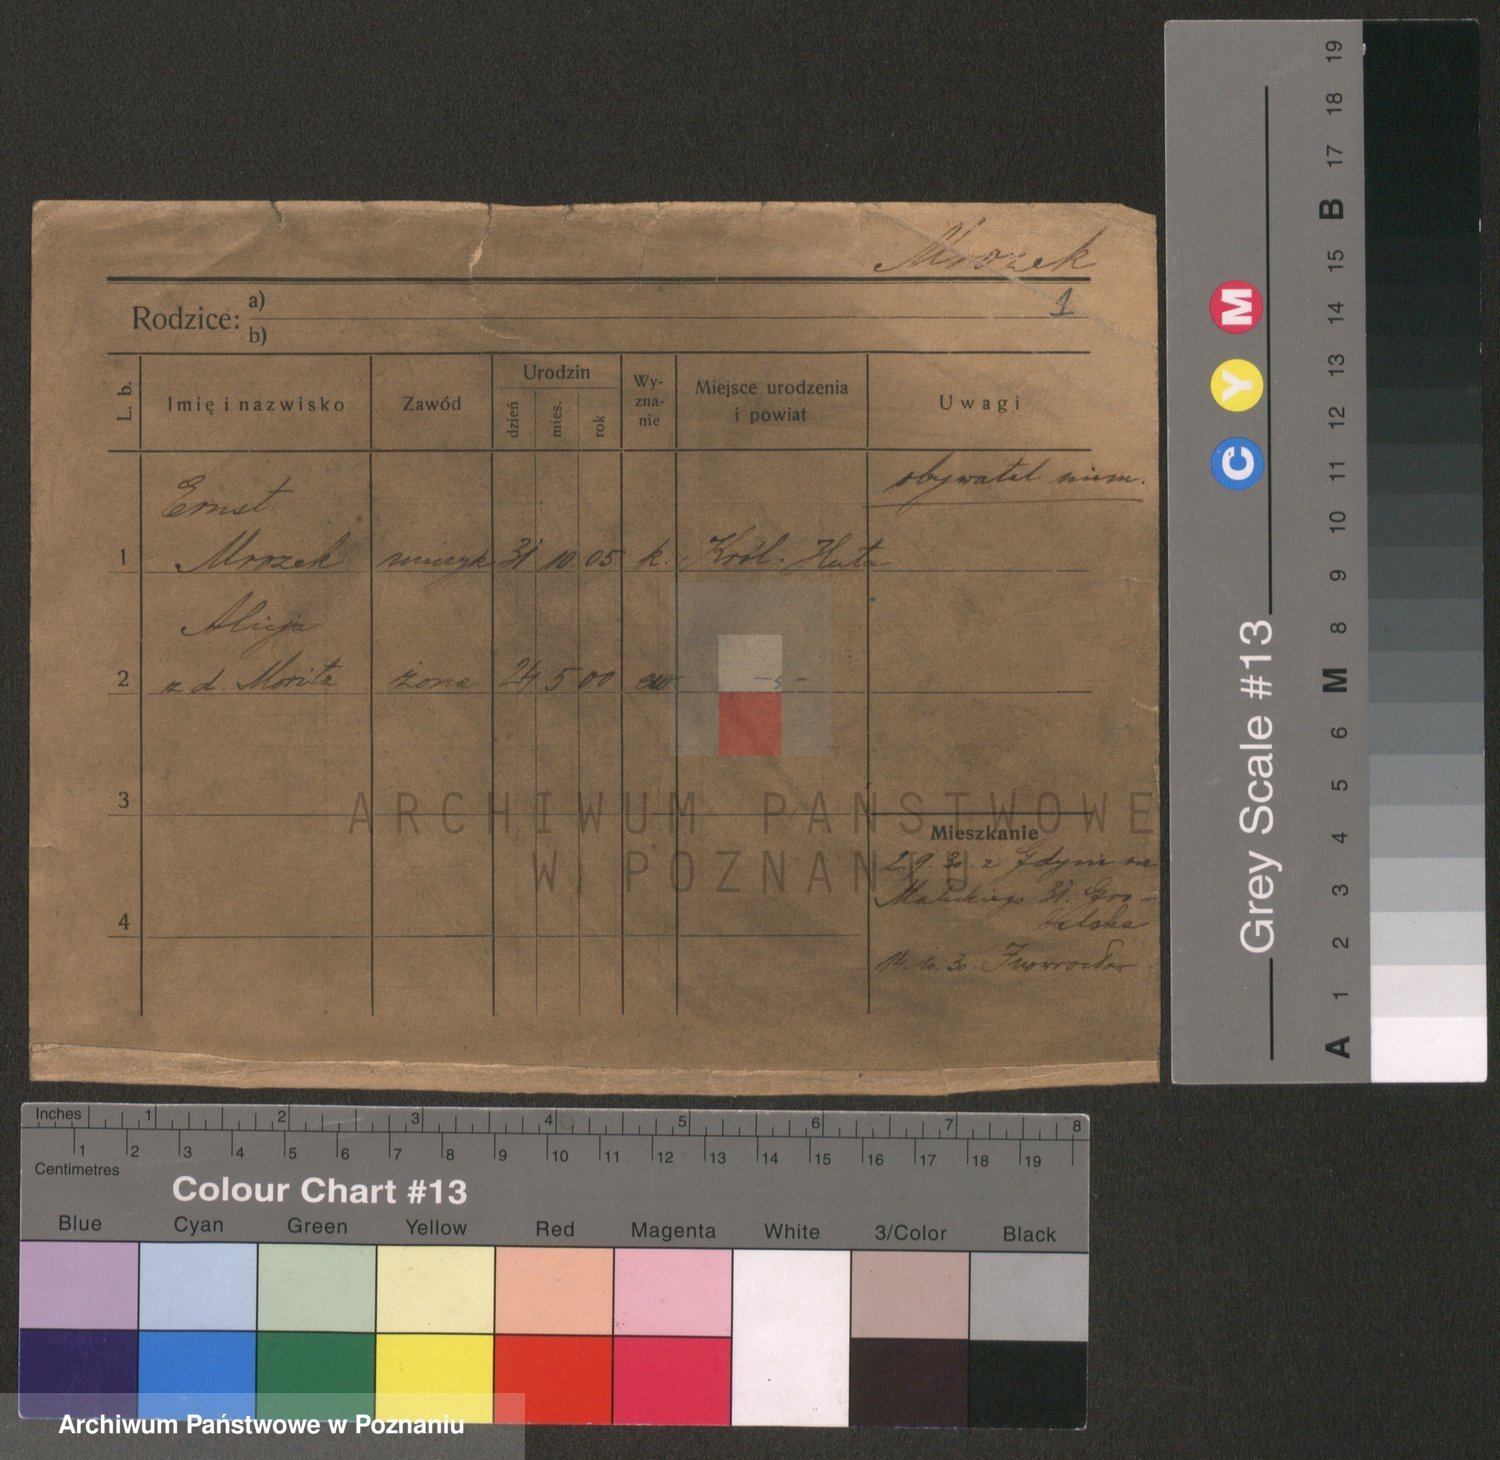 Mrozek
1
Rodzice: a)
b)
L. b.
Imię i nazwisko
Zawód
Urodzin
dzień
mies.
rok
Wy-
zna-
nie
Miejsce urodzenia
i powiat
Uwagi
obywatel niem.
Ernst
1 Mrozek muzyk 31 10 05 k. Król. Huta
Alicja
2 z d. Moritz żona 24 5 00 ew -„-
3
Mieszkanie
2.9.30. z Gdyni na
31.
4
14.10.30. Inowrocław
ARCHIWUM PAŃSTWOWE
W POZNANIU
Grey Scale #13
C Y M
A 1 2 3 4 5 6 M 8 9 10 11 12 13 14 15 B 17 18 19
Inches 1 2 3 4 5 6 7 8
Centimetres 1 2 3 4 5 6 7 8 9 10 11 12 13 14 15 16 17 18 19
Colour Chart #13
Blue Cyan Green Yellow Red Magenta White 3/Color Black
Archiwum Państwowe w Poznaniu